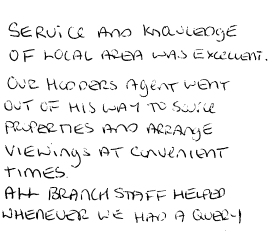 SERVICE AND KNOWLEDGE
OF LOCAL AREA WAS EXCELLENT.
OUR HUNTERS AGENT WENT
OUT OF HIS WAY TO SOURCE
PROPERTIES AND ARRANGE
VIEWINGS AT CONVENIENT
TIMES.
ALL BRANCH STAFF HELPED
WHENEVER WE HAD A QUERY